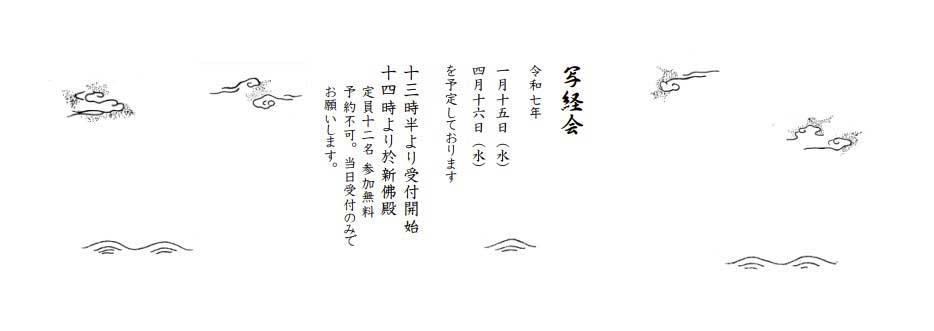 写経会
令和七年
一月十五日（水）
四月十六日（水）
を予定しております
十三時半より受付開始
十四時より於新佛殿
定員十二名 参加無料
予約不可。当日受付のみで
お願いします。